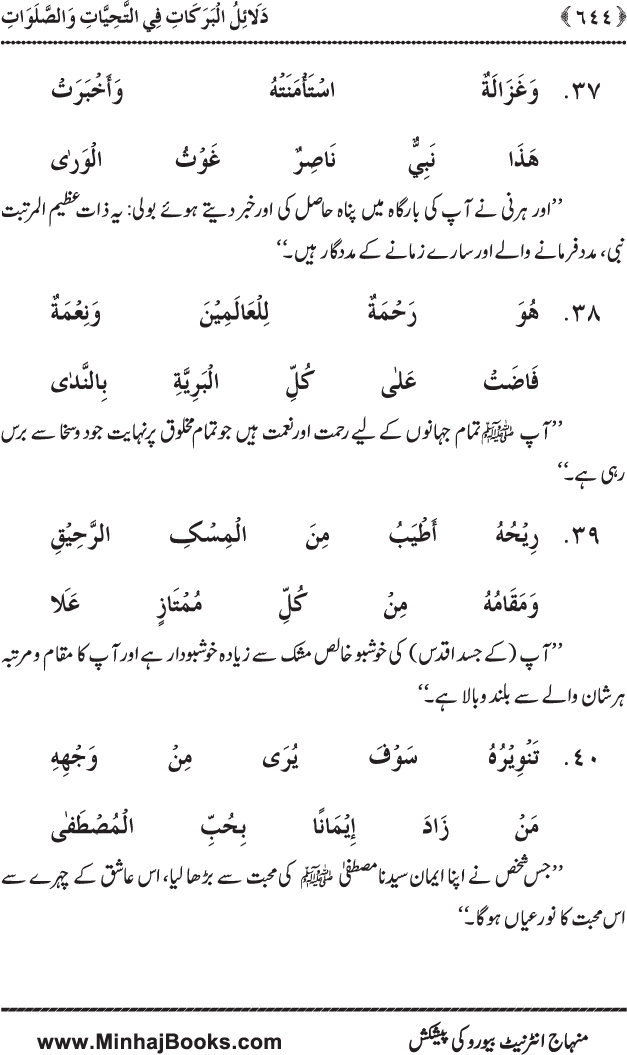 ﴿٦٤٤﴾ دَلَائِلُ الْبَرَكَاتِ فِي التَّحِيَّاتِ وَالصَّلَوَاتِ
٣٧. وَغَزَالَةٌ اسْتَأْمَنَتْهُ وَأَخْبَرَتْ
هَذَا نَبِيٌّ نَاصِرٌ غَوْثُ الْوَرٰى
’’اور ہرنی نے آپ کی بارگاہ میں پناہ حاصل کی اور خبر دیتے ہوئے بولی: یہ ذات عظیم المرتبت
نبی، مدد فرمانے والے اور سارے زمانے کے مددگار ہیں۔‘‘
٣٨. هُوَ رَحْمَةٌ لِلْعَالَمِيْنَ وَنِعْمَةٌ
فَاضَتْ عَلٰى كُلِّ الْبَرِيَّةِ بِالنَّدٰى
’’آپ ﷺ تمام جہانوں کے لیے رحمت اور نعمت ہیں جو تمام مخلوق پر نہایت جود و سخا سے برس
رہی ہے۔‘‘
٣٩. رِيْحُهُ أَطْيَبُ مِنَ الْمِسْكِ الرَّحِيْقِ
وَمَقَامُهُ مِنْ كُلِّ مُمْتَازٍ عَلَا
’’آپ (کے جسد اقدس) کی خوشبو خالص مشک سے زیادہ خوشبودار ہے اور آپ کا مقام و مرتبہ
ہر شان والے سے بلند و بالا ہے۔‘‘
٤٠. تَنْوِيْرُهُ سَوْفَ يُرَى مِنْ وَجْهِهِ
مَنْ زَادَ إِيْمَانًا بِحُبِّ الْمُصْطَفٰى
’’جس شخص نے اپنا ایمان سیدنا مصطفیٰ ﷺ کی محبت سے بڑھا لیا، اس عاشق کے چہرے سے
اس محبت کا نور عیاں ہوگا۔‘‘
منہاج انٹرنیٹ بیورو کی پیشکش www.MinhajBooks.com